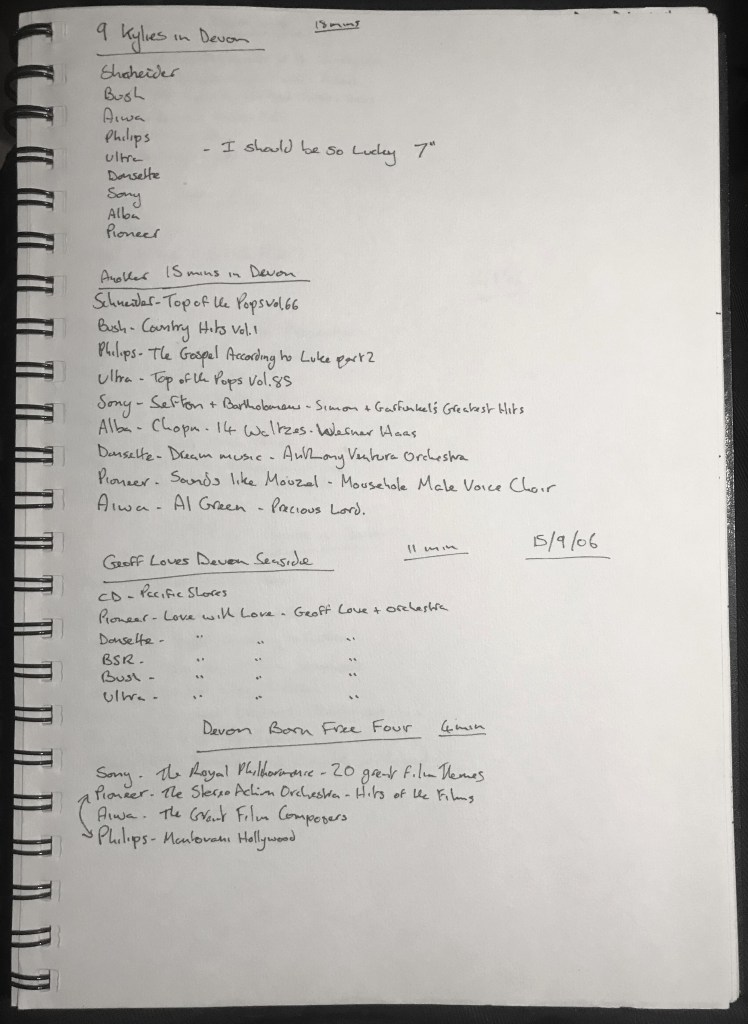 9 Kylies in Devon 15 mins
Shcheider
Bush
Aiwa
Philips
Ultra - I should be so Lucky 7"
Dansette
Sony
Alba
Pioneer
Another 15 mins in Devon
Schneider - Top of the Pops vol.66
Bush - Country Hits Vol.1
Philips - The Gospel According to Luke part 2
Ultra - Top of the Pops Vol.85
Sony - Sefton + Bartholomew - Simon + Garfunkel's Greatest Hits
Alba - Chopn - 14 Waltzes - Werner Haas
Dansette - Dream music - Anthony Ventura Orchestra
Pioneer - Sounds like Mouzel - Mousehole Male Voice Choir
Aiwa - Al Green - Precious Lord.
Geoff Loves Devon Seaside 11 min 15/9/06
CD - Pacific Shores
Pioneer - Love with Love - Geoff Love + orchestra
Dansette - " " "
BSR - " " "
Bush - " " "
Ultra - " " "
Devon Born Free Four 4min
Sony - The Royal Philharmonic - 20 great film Themes
Pioneer - The Stereo Action Orchestra - Hits of the Films
Aiwa - The Great Film Composers
Philips - Mantovani Hollywood